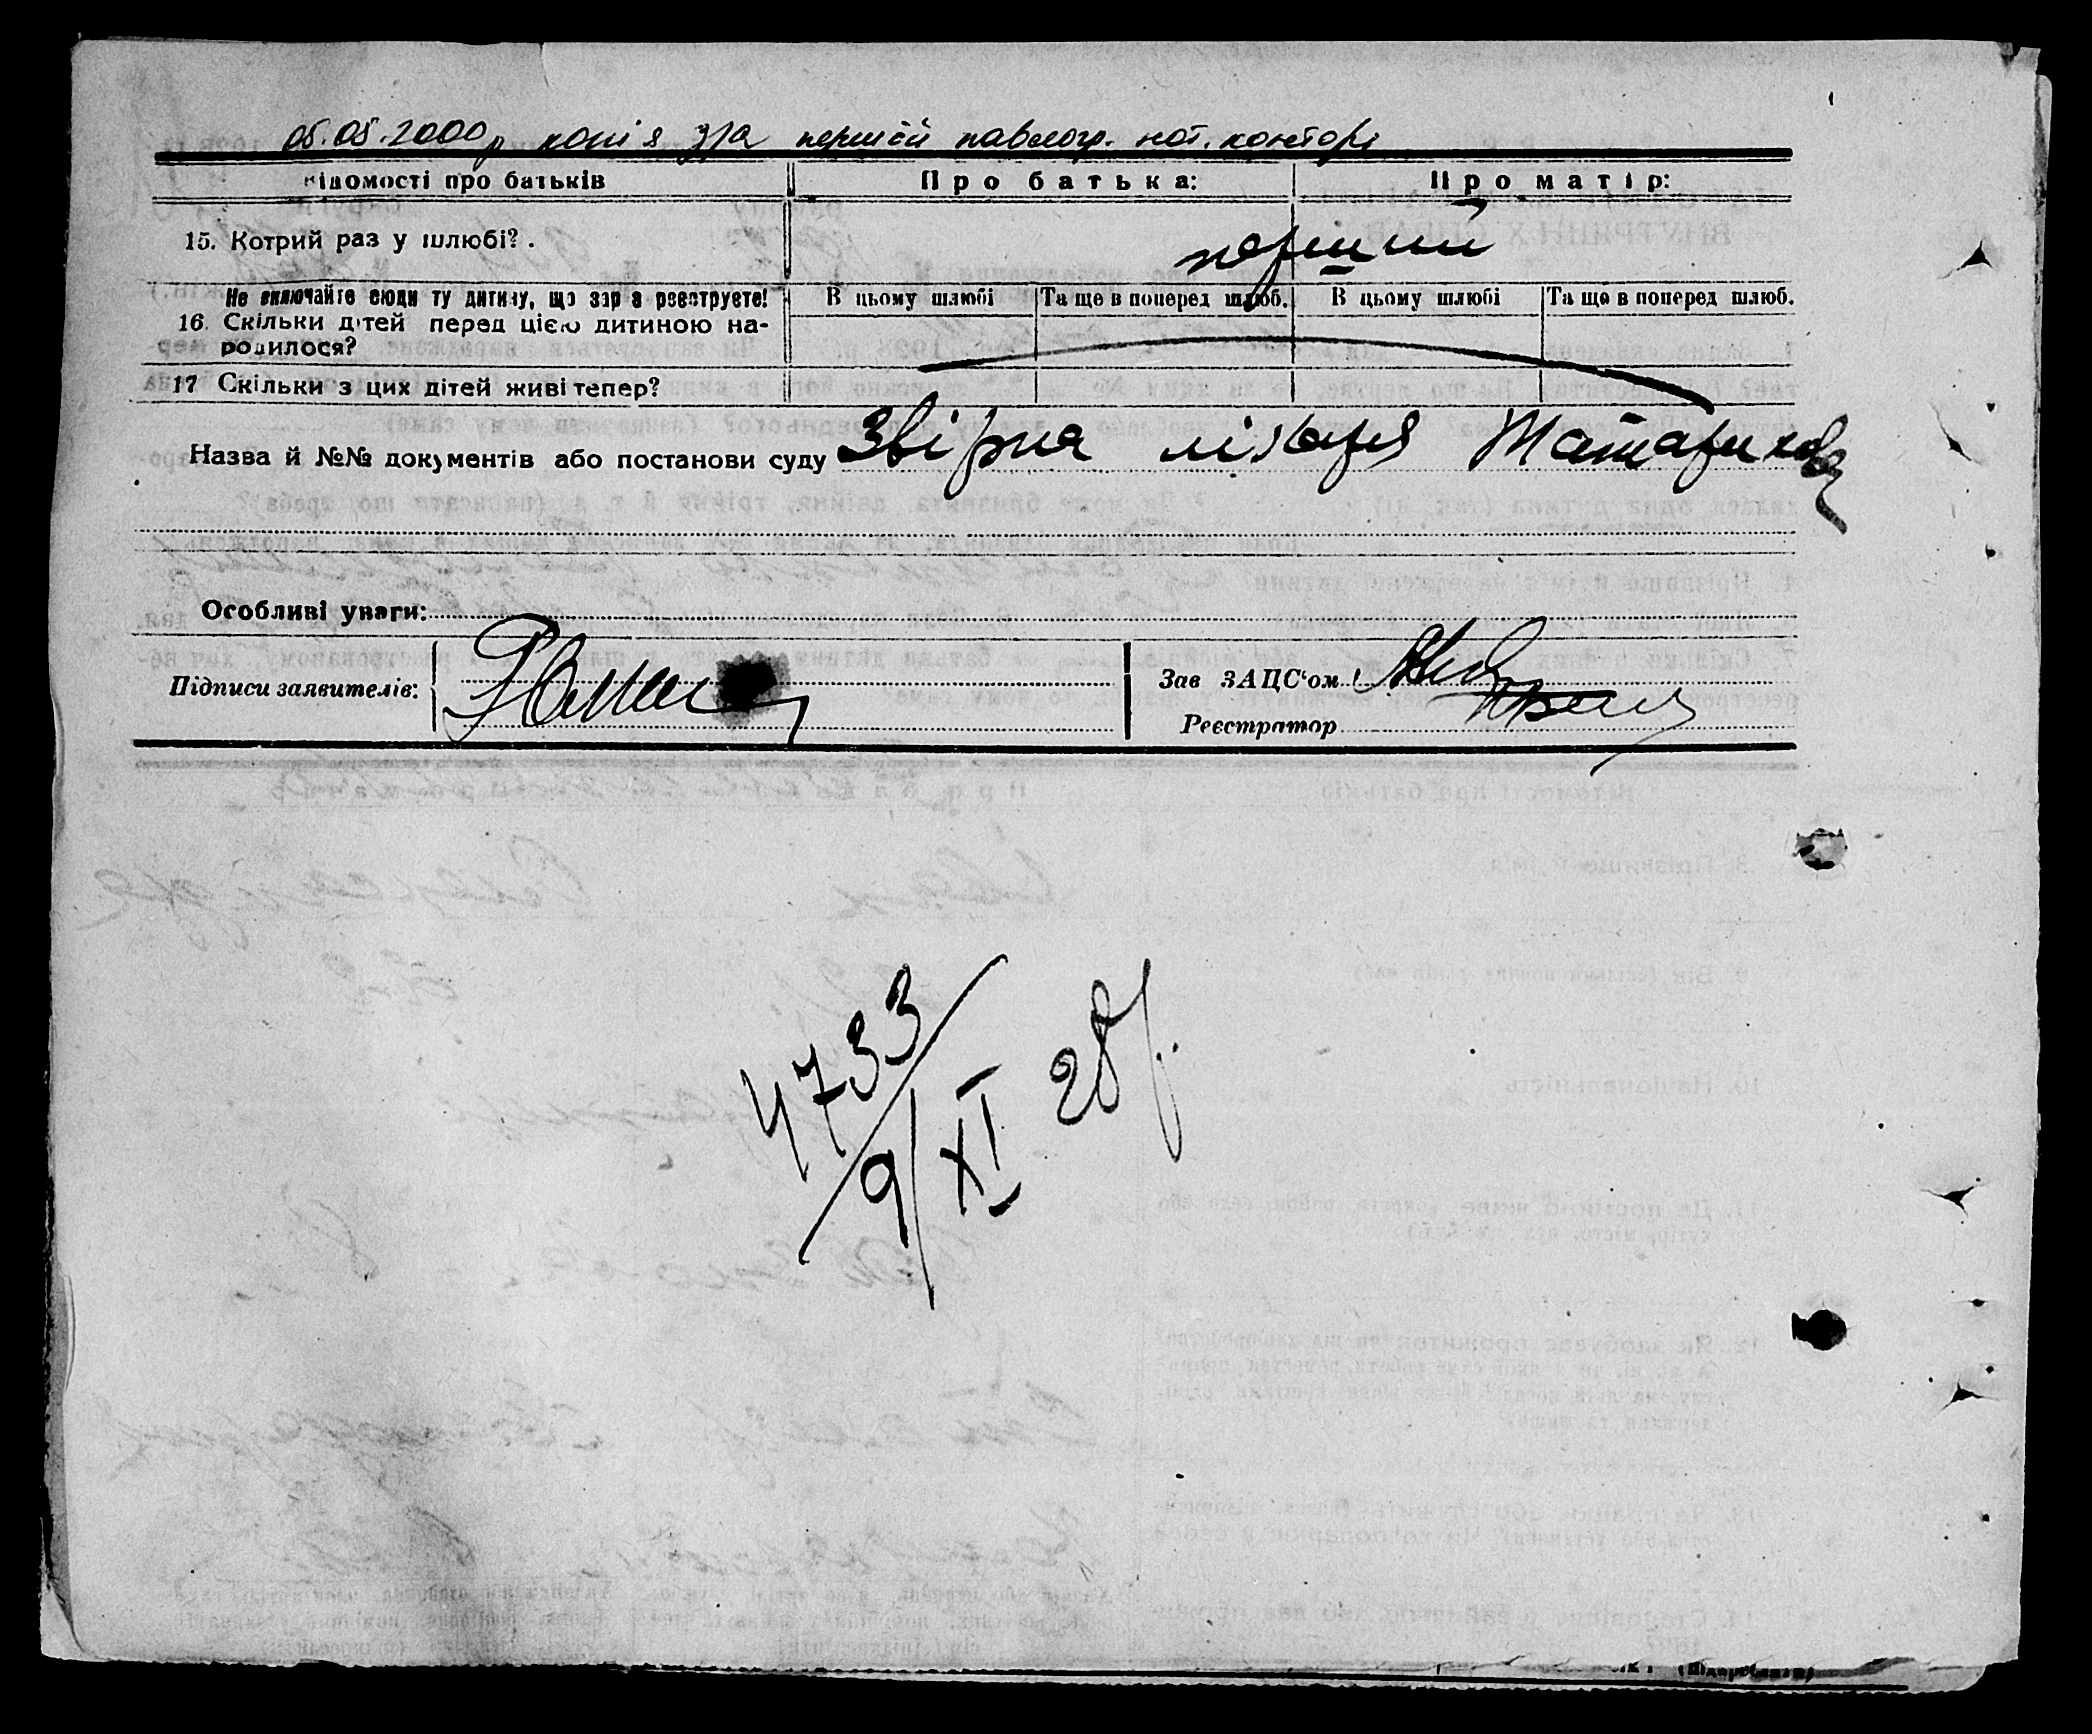 05.05.2000р копія з/а першій павлогр. нот. конторі
Відомості про батьків
Про батька:
Про матір:
15. Котрий раз у шлюбі?.
перший
Не включайте сюди ту дитину, що зараз реєструєте!
В цьому шлюбі
Та ще в поперед шлюб.
В цьому шлюбі
Та ще в поперед шлюб.
16. Скільки дітей перед цією дитиною на-
родилося?
17 Скільки з цих дітей живі тепер?
Назва й №№ документів або постанови суду Звірка лікаря
Особливі уваги:
Підписи заявителів:
Зав ЗАЦС‘ом
Реєстратор
4733
9/XI 28р.